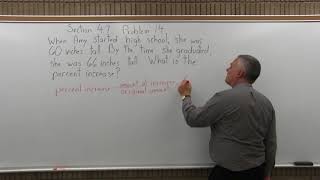 Section 4.7 Problem 14
When Amy started high school, she was
60 inches tall. By the time she graduated,
she was 66 inches tall. What is the
percent increase?
percent increase amount of increase
original amount